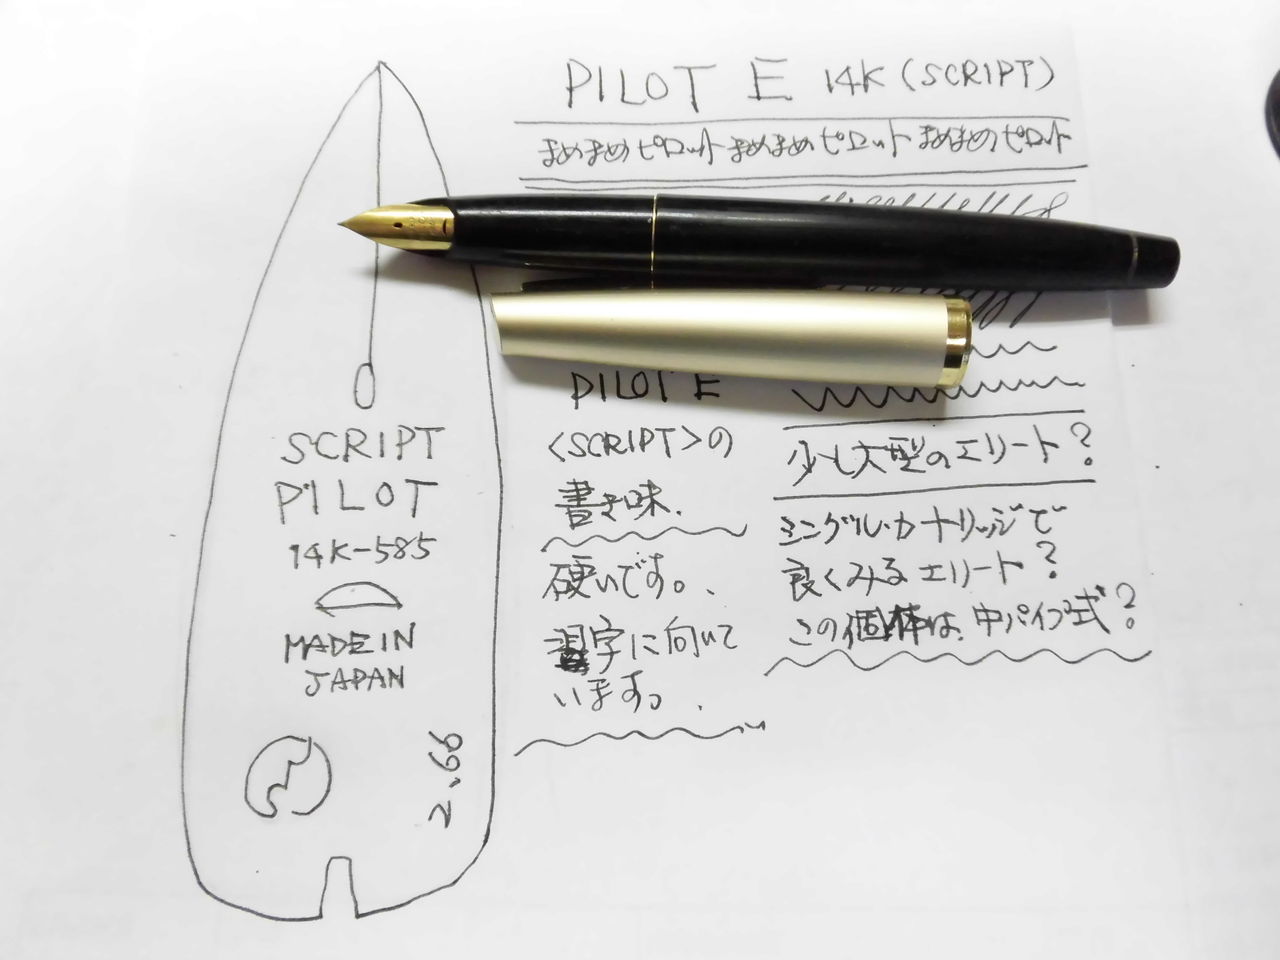 PILOT E 14K (SCRIPT)
まめまめピロット まめまめピロット まめまめピロット
SCRIPT
PILOT
14K-585
MADE IN
JAPAN
2.66
PILOT E
<SCRIPT>の
書き味.
硬いです。
習字に向いて
います。
少し大型のエリート?
シングルカートリッジで
良くみるエリート?
この個体は、中パイプ式?